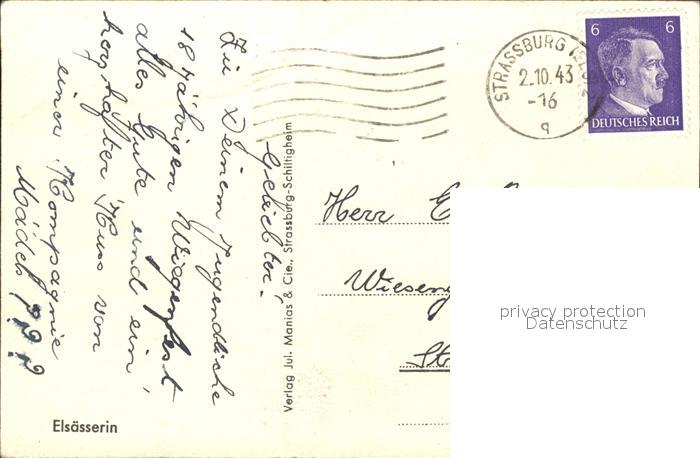 Geliebter!
Zu Deinem Jugendliche
18 Jährigen Wiegenfest
alles Gute und ein
herzhafter Kuss von
einer Kompagnie
Mädels ???
Elsässerin
Verlag Jul. Manias & Cie., Strassburg-Schiltigheim
STRASSBURG (ELS)
2.10.43
-16
q
6 6
DEUTSCHES REICH
Herr
privacy protection
Datenschutz